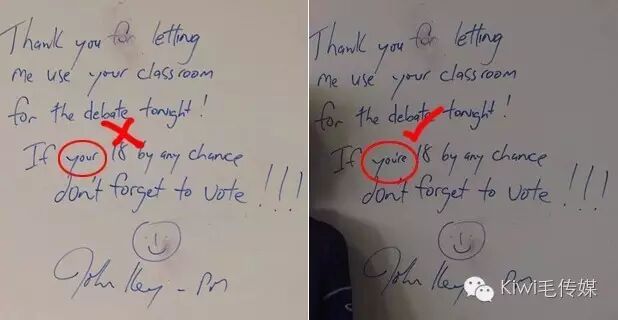 Thank you for letting
me use your classroom
for the debate tonight!
If your 18 by any chance
don't forget to vote!!!
John Key - PM
Thank you for letting
me use your classroom
for the debate tonight!
If you're 18 by any chance
don't forget to vote!!!
John Key - PM
Kiwi毛传媒